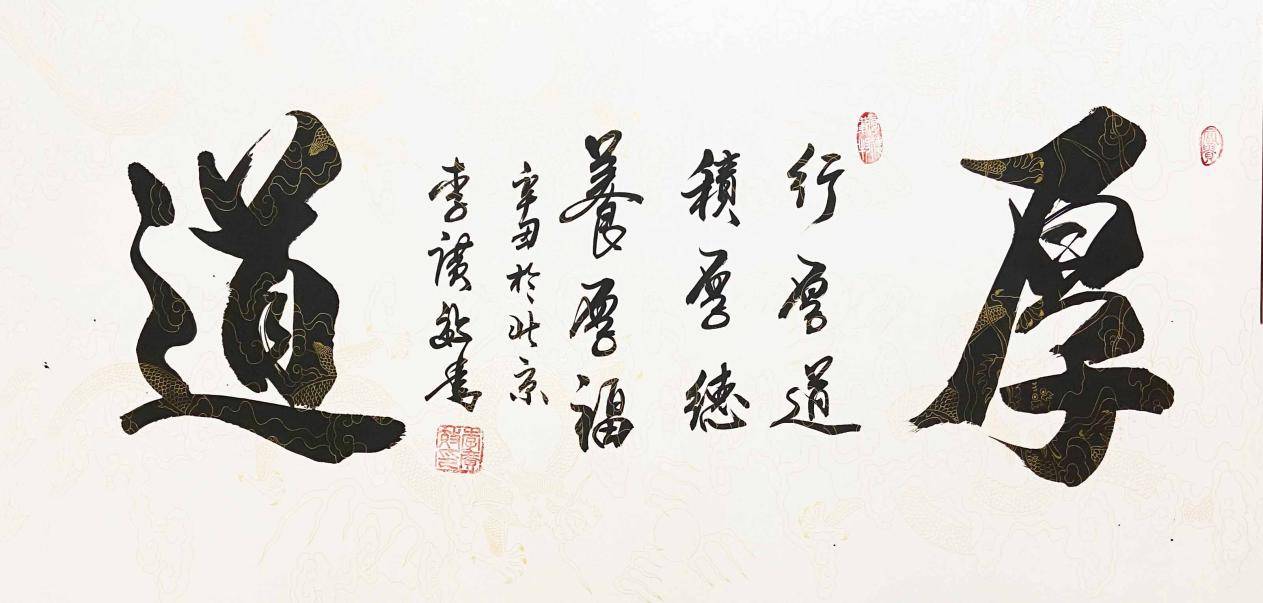 厚道
行厚道
積厚德
養厚福
辛丑於北京
李書